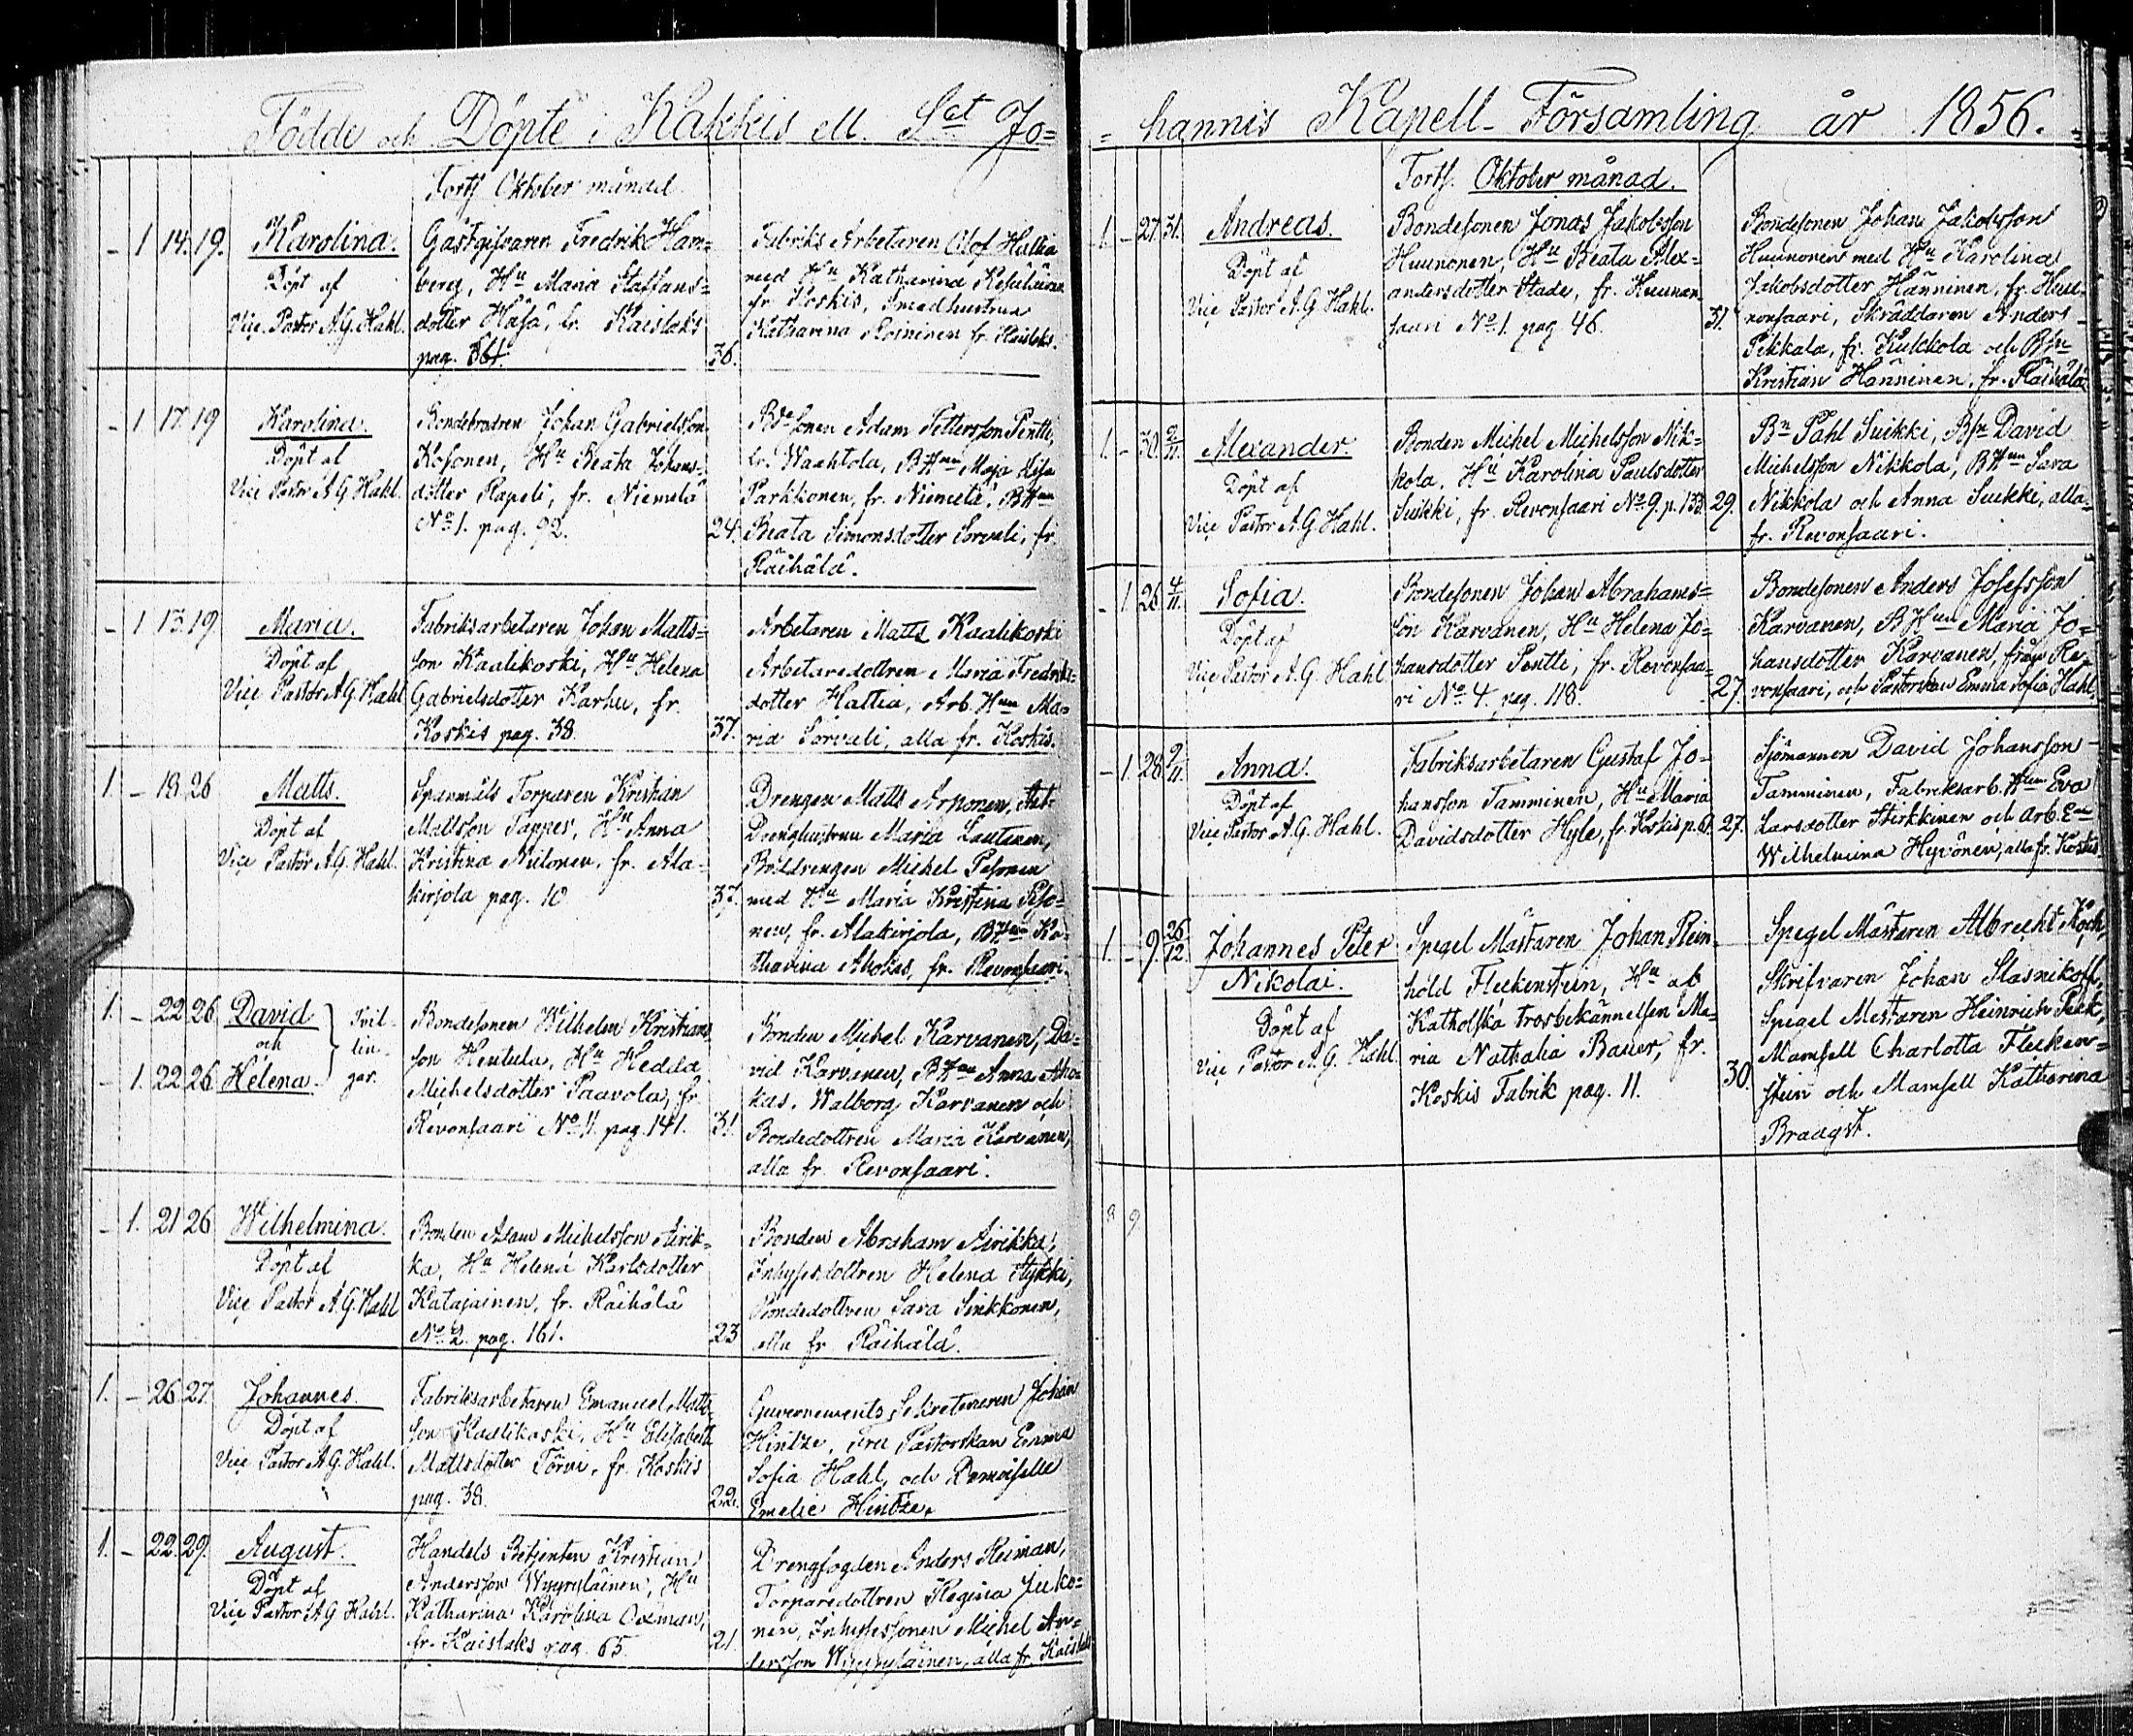 Födde och Döpte i Kakkis ell. Sct Jo=
Forts Oktober månad
- 1 14. 19. Karolina.
Döpt af
Vice Pastor A.G. Hahl.
Gästgifvaren Fredrik Ham=
berg, Hu Maria Staffans=
dotter Häsä, fr. Kaislaks
pag. 361.
36.
Fabriks Arbetaren Olof Hattia
med Hu Katharina
fr. Koskis, Smedhustrun
Katharina Roininen fr. Kaislaks.
- 1 17. 19 Karolina.
Döpt af
Vice Pastor A G. Hahl.
Bondebrodren Johan Gabrielsson
Kosonen, Hu Beata Johans=
dotter Rapeli, fr. Niemelä
No 1. pag. 92.
24.
Bdesonen Adam Pettersson Pentti,
fr. Waahtola, BHun Maja Lisa
Parkkonen, fr. Niemelä, BHun
Beata Simonsdotter Sorvali, fr.
Räihälä.
- 1 13. 19 Maria.
Döpt af
Vice Pastor A G. Hahl
Fabriksarbetaren Johan Matts=
son Kaalikoski, Hu Helena
Gabrielsdotter Karhu, fr.
Koskis pag. 38.
37.
Arbetaren Matts Kaalikoski
Arbetaredottren Maria Fredriks=
dotter Hattia, Arb. Hun Ma=
ria Sorvali, alla fr. Koskis.
1. - 18 26 Matts.
Döpt af
Vice Pastor A.G. Hahl.
Spanmåls Torparen Kristian
Mattsson Tapper, Hu Anna
Kristina Niilonen, fr. Ala=
kirjola pag. 10
37.
Drengen Matts Arponen,
Drenghustrun Maria Lautanen,
Böldrengen Michel Pesonen
med Hu Maria Kristina Peso=
nen, fr. Alakirjola, BHun Ka=
tharina Ahokas, fr. Revonsaari.
1. - 22 26 David
och
- 1. 22 26 Helena.
Tvil-
lin-
gar.
Bondesonen Wilhelm Kristians
son Hentula, Hu Hedda
Michelsdotter Paavola, fr.
Revonsaari No 11. pag. 141.
31.
Bonden Michel Karvanen, Da=
vid Karvanen, BHun Anna Aho=
kas, Walborg Karvanen och
Bondedottren Maria Karvanen,
alla fr. Revonsaari.
- 1. 21 26 Wilhelmina.
Döpt af
Vice Pastor A.G. Hahl
Bonden Adam Michelsson Airik=
ka, Hu Helena Karlsdotter
Katajainen, fr. Räihälä
No 2. pag. 161.
23
Bonden Abraham Airikka,
Inhysesdottren Helena Hykki,
Bondedottren Sara Sinkkonen,
alla fr Räihälä.
1. - 26 27 Johannes.
Döpt af
Vice Pastor A.G. Hahl.
Fabriksarbetaren Emanuel Matts=
son Kaalikoski, Hu Elisabeth
Mattsdotter Törni, fr. Koskis
pag. 38.
22.
Guvernements Sekreteraren Johan
Hintze, Fru Pastorskan Emma
Sofia Hahl, och Demoiselle
Emelie Hintze.
1. - 22. 29. August.
Döpt af
Vice Pastor A G Hahl.
Handels Betjenten Kristian
Andersson Wyyryläinen, Hu
Katharina Karolina Oxman,
fr. Kaislaks pag. 65.
21
Drengfogden Anders Heiman,
Torparedottren Regina Juko=
nen, Inhysessonen Michel An=
dersson Wyyryläinen, alla fr. Kaislaks
= hannis Kapell-Församling år 1856.
Forts. Oktober månad.
1. - 27. 31. Andreas.
Döpt af
Vice Pastor A.G. Hahl.
Bondesonen Jonas Jakobsson
Huunonen, Hu Beata Alex=
andersdotter Stade, fr. Huunon
saari No 1. pag 46.
31.
Bondesonen Johan Jakobsson
Huunonen med Hu Karolina
Jakobsdotter Hänninen, fr. Huu-
nonsaari, Skräddaren Anders
Pekkala, fr. Kukkola och Bsn
Kristian Hänninen, fr. Räihälä
1. - 30. 2/11. Alexander.
Döpt af
Vice Pastor A.G Hahl.
Bonden Michel Michelsson Nik=
kola, Hu Karolina Paulsdotter
Suikki, fr. Revonsaari No 9. p. 133.
29.
Bn Pahl Suikki, Bsn David
Michelsson Nikkola, BHun Sara
Nikkola och Anna Suikki, alla
fr. Revonsaari.
- 1. 26 4/11. Sofia.
Döpt af
Vice Pastor A.G. Hahl
Bondesonen Johan Abrahams=
son Karvanen, Hu Helena Jo=
hansdotter Pentti, fr. Revonsaa=
ri No 4. pag. 118.
27.
Bondesonen Anders Josefsson
Karvanen, BHun Maria Jo=
hansdotter Karvanen, från Re=
vonsaari, och Pastorskan Emma Sofia Hahl.
- 1. 28 9/11. Anna.
Döpt af
Vice Pastor A.G. Hahl.
Fabriksarbetaren Gustaf Jo=
hansson Tamminen, Hu Maria
Davidsdotter Hyle, fr. Koskis p. 61.
27.
Sjömannen David Johansson
Tamminen, Fabriksarb. Hun Eva
Larsdotter Hirkkinen och Arb. En
Wilhelmina Hyvönen, alla fr. Koskis.
1. - 9. 26/12. Johannes Peter
Nikolai.
Döpt af
Vice Pastor A. G. Hahl.
Spegel Mästaren Johan Rein-
hold Fleckenstein, Hu af
Katholska trosbekännelsen Ma=
ria Nathalia Bauer, fr.
Koskis Fabrik pag. 11.
30.
Spegel Mästaren Albrecht Koch,
Skrifvaren Johan Slasnikoff,
Spegel Mestaren Heinrich Peck,
Mamsell Charlotta Flecken=
stein och Mamsell Katharina
Braagst.
8 9